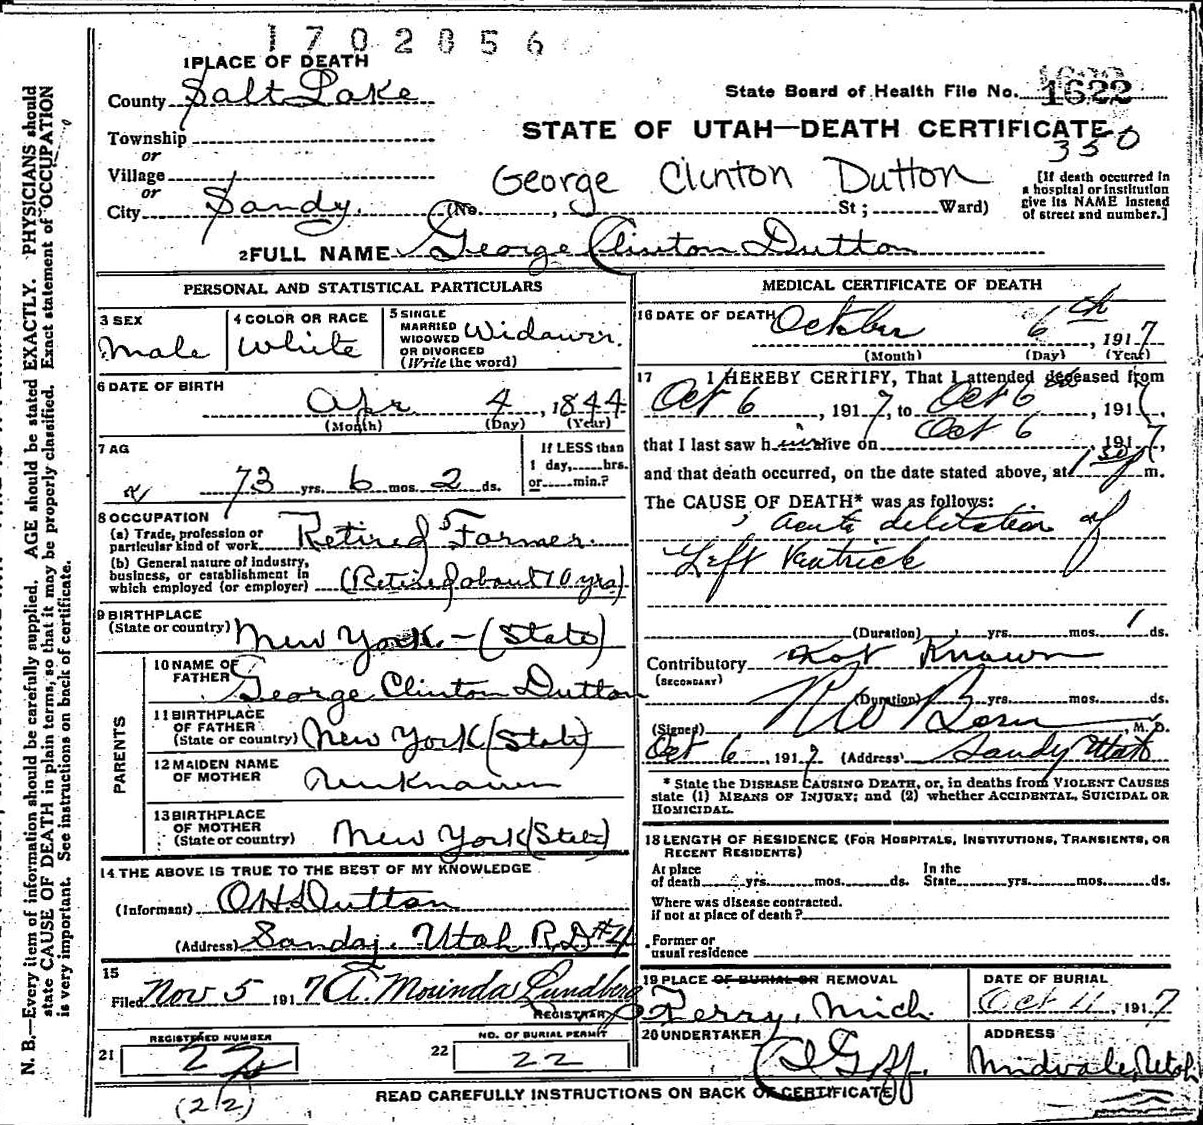 1702056
1 PLACE OF DEATH
County Salt Lake
State Board of Health File No. 1622
Township
STATE OF UTAH—DEATH CERTIFICATE
or
350
Village
George Clinton Dutton
[If death occurred in a hospital or institution give its NAME instead of street and number.]
or
City Sandy. (No. , St; Ward)
2 FULL NAME George Clinton Dutton
PERSONAL AND STATISTICAL PARTICULARS
3 SEX
Male
4 COLOR OR RACE
White
5 SINGLE
MARRIED
WIDOWED
OR DIVORCED
(Write the word)
Widawer.
6 DATE OF BIRTH
Apr. 4, 1844
(Month) (Day) (Year)
7 AG
73 yrs. 6 mos. 2 ds.
If LESS than
1 day, hrs.
or min.?
8 OCCUPATION
(a) Trade, profession or
particular kind of work Retired Farmer.
(b) General nature of industry,
business, or establishment in
which employed (or employer) (Retired about 10 yrs)
9 BIRTHPLACE
(State or country) New York.-(State)
PARENTS
10 NAME OF
FATHER George Clinton Dutton
11 BIRTHPLACE
OF FATHER
(State or country) New York (State)
12 MAIDEN NAME
OF MOTHER Unknown
13 BIRTHPLACE
OF MOTHER
(State or country) New York (State)
14 THE ABOVE IS TRUE TO THE BEST OF MY KNOWLEDGE
(Informant) O H Dutton
(Address) Sanday. Utah R.D #4
15
Filed Nov 5 1917 A. Morinda Lundberg
REGISTRAR
REGISTERED NUMBER
21 22
NO. OF BURIAL PERMIT
22 22
(22)
MEDICAL CERTIFICATE OF DEATH
16 DATE OF DEATH October 6th, 1917
(Month) (Day) (Year)
17 I HEREBY CERTIFY, That I attended deceased from
Oct 6, 1917, to Oct 6, 191
that I last saw h im alive on Oct 6, 1917,
and that death occurred, on the date stated above, at 130 P m.
The CAUSE OF DEATH* was as follows:
acute dilitation of
Left Ventricle
(Duration) yrs. mos. 1 ds.
Contributory Not Known
(SECONDARY)
(Duration) yrs. mos. ds.
(Signed) M. D.
Oct 6, 1917 (Address) Sandy Utah
* State the DISEASE CAUSING DEATH, or, in deaths from VIOLENT CAUSES
state (1) MEANS OF INJURY; and (2) whether ACCIDENTAL, SUICIDAL OR
HOMICIDAL.
18 LENGTH OF RESIDENCE (FOR HOSPITALS, INSTITUTIONS, TRANSIENTS, OR
RECENT RESIDENTS)
At place
of death yrs. mos. ds.
In the
State yrs. mos. ds.
Where was disease contracted.
if not at place of death?
Former or
usual residence
19 PLACE OF BURIAL OR REMOVAL
Ferry, Mich.
DATE OF BURIAL
Oct 11, 1917
20 UNDERTAKER
Goff.
ADDRESS
Midvale, Utah
READ CAREFULLY INSTRUCTIONS ON BACK OF CERTIFICATE
N. B.—Every item of information should be carefully supplied. AGE should be stated EXACTLY. PHYSICIANS should
state CAUSE OF DEATH in plain terms, so that it may be properly classified. Exact statement of OCCUPATION
is very important. See instructions on back of certificate.